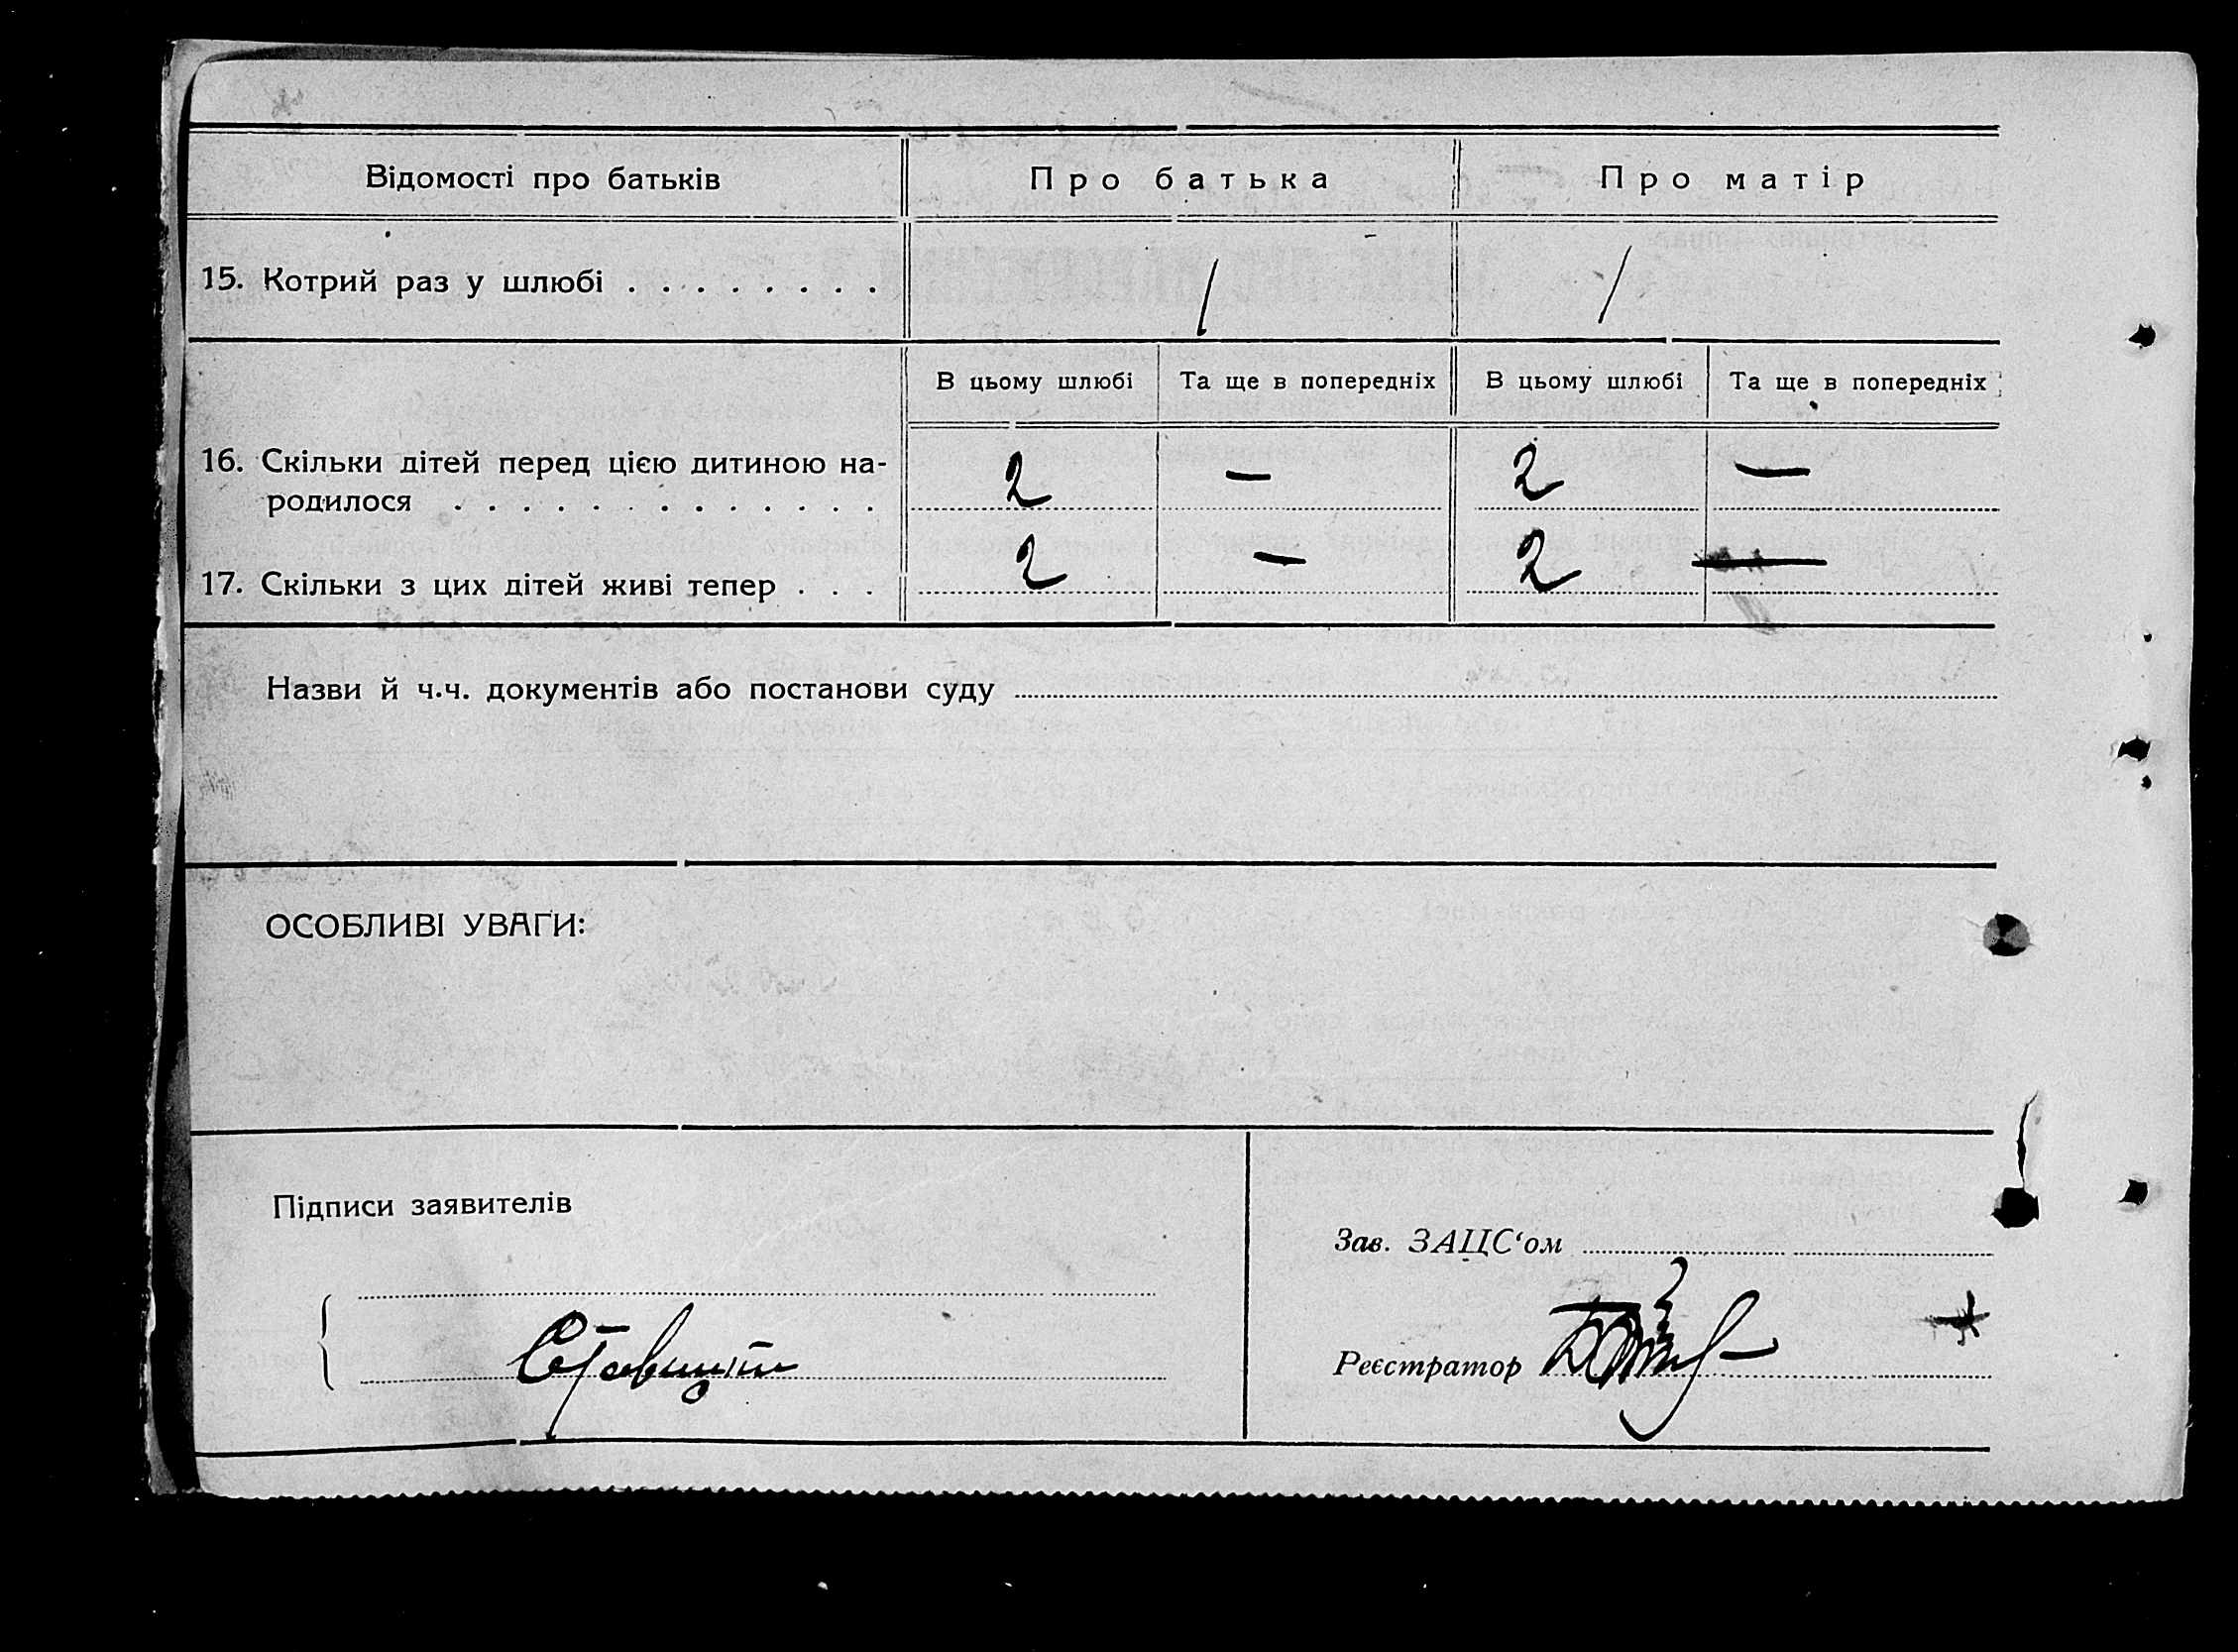 Відомості про батьків Про батька Про матір
15. Котрий раз у шлюбі . . . . . . . . 1 1
В цьому шлюбі Та ще в попередніх В цьому шлюбі Та ще в попередніх
16. Скільки дітей перед цією дитиною на-
родилося . . . . . . . . . . . . . 2 — 2 —
17. Скільки з цих дітей живі тепер . . . 2 — 2 —
Назви й ч.ч. документів або постанови суду
ОСОБЛИВІ УВАГИ:
Підписи заявителів
Зав. ЗАЦС‘ом
Реєстратор